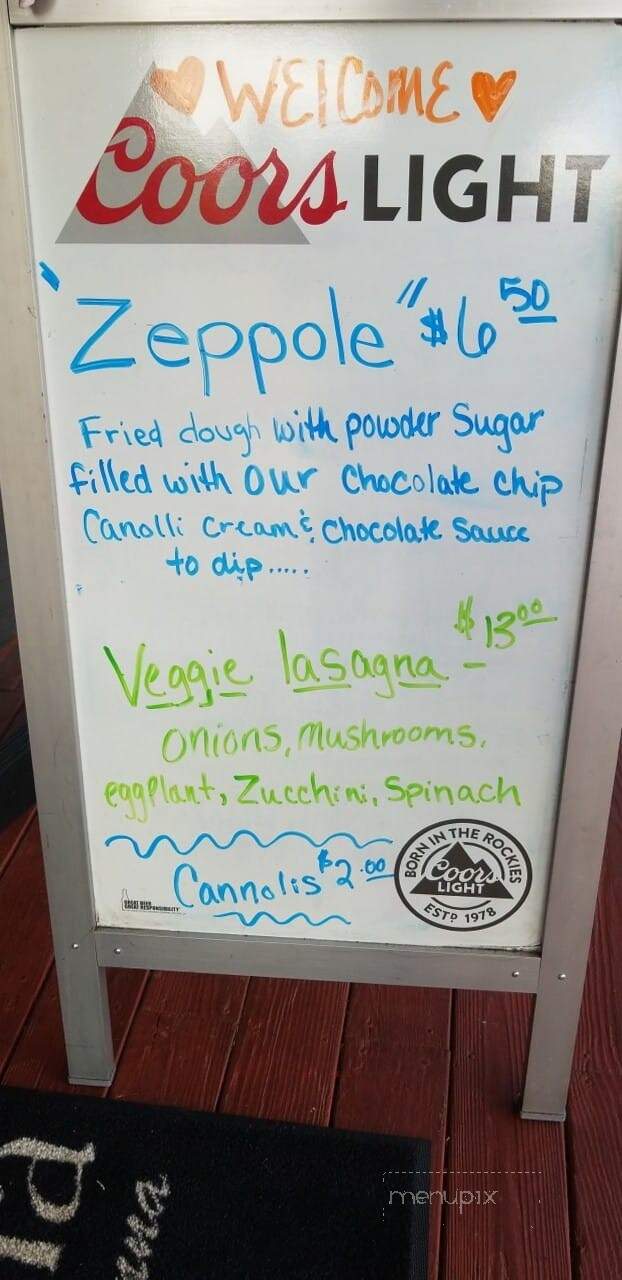 WElCOME
Coors LIGHT
"Zeppole" $6 50
Fried dough with powder Sugar
filled with our Chocolate chip
Canolli Cream & Chocolate Sauce
to dip.....
$13 00
Veggie lasagna -
onions, Mushrooms,
eggplant, Zucchini, Spinach
Cannolis $2.00
BORN IN THE ROCKIES
Coors
LIGHT
ESTD 1978
GREAT BEER
GREAT RESPONSIBILITY
menupix